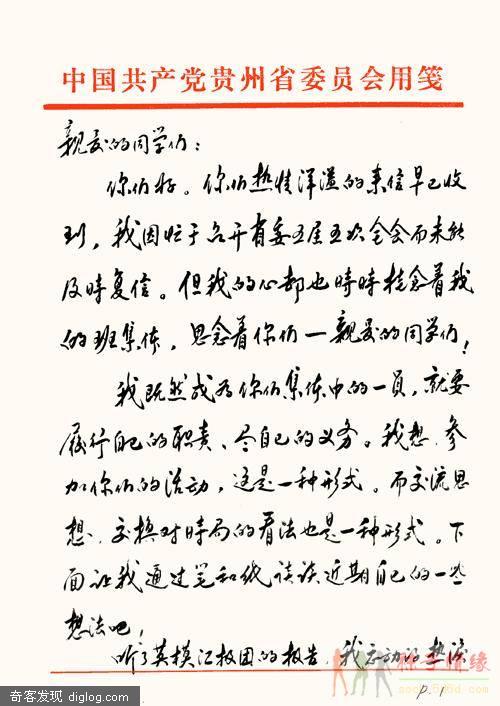 中国共产党贵州省委员会用笺
亲爱的同学们：
你们好。你们热情洋溢的来信早已收
到，我因忙于召开省委五届五次全会而未能
及时复信。但我的心却也時時挂念着我
的班集体，思念着你们—亲爱的同学们！
我既然成为你们集体中的一员，就要
履行自己的职责、尽自己的义务。我想，参
加你们的活动，这是一种形式。而交流思
想、交换对時局的看法也是一种形式。下
面让我通过笔和纸谈谈近期自己的一些
想法吧！
听了英模汇报团的报告，我激动的热泪
P.1
奇客发现 diglog.com